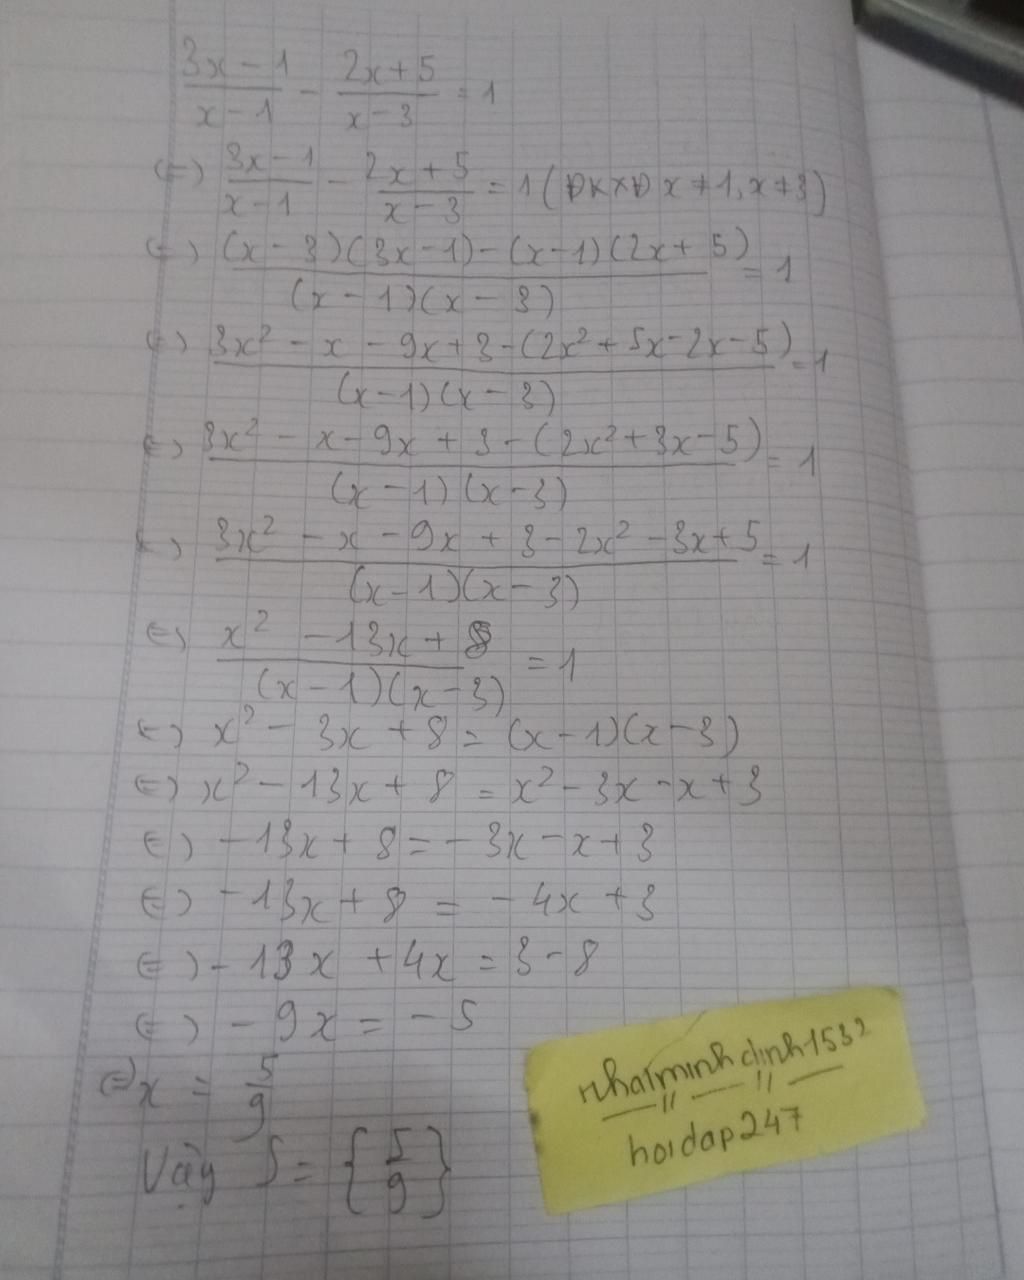 3x-1/x-1 - 2x+5/x-3 = 1
(=) 3x-1/x-1 - 2x+5/x-3 = 1 (ĐKXĐ x≠1, x≠3)
(=) (x-3)(3x-1)-(x-1)(2x+5)/(x-1)(x-3) = 1
(=) 3x²-x-9x+3-(2x²+5x-2x-5)/(x-1)(x-3) = 1
(=) 3x²-x-9x+3-(2x²+3x-5)/(x-1)(x-3) = 1
(=) 3x²-x-9x+3-2x²-3x+5/(x-1)(x-3) = 1
(=) x²-13x+8/(x-1)(x-3) = 1
(=) x²-3x+8=(x-1)(x-3)
(=) x²-13x+8=x²-3x-x+3
(=) -13x+8=-3x-x+3
(=) -13x+8=-4x+3
(=) -13x+4x=3-8
(=) -9x=-5
(=) x=5/9
Vậy S={5/9}
nhatminhdinh1532
hoidap247